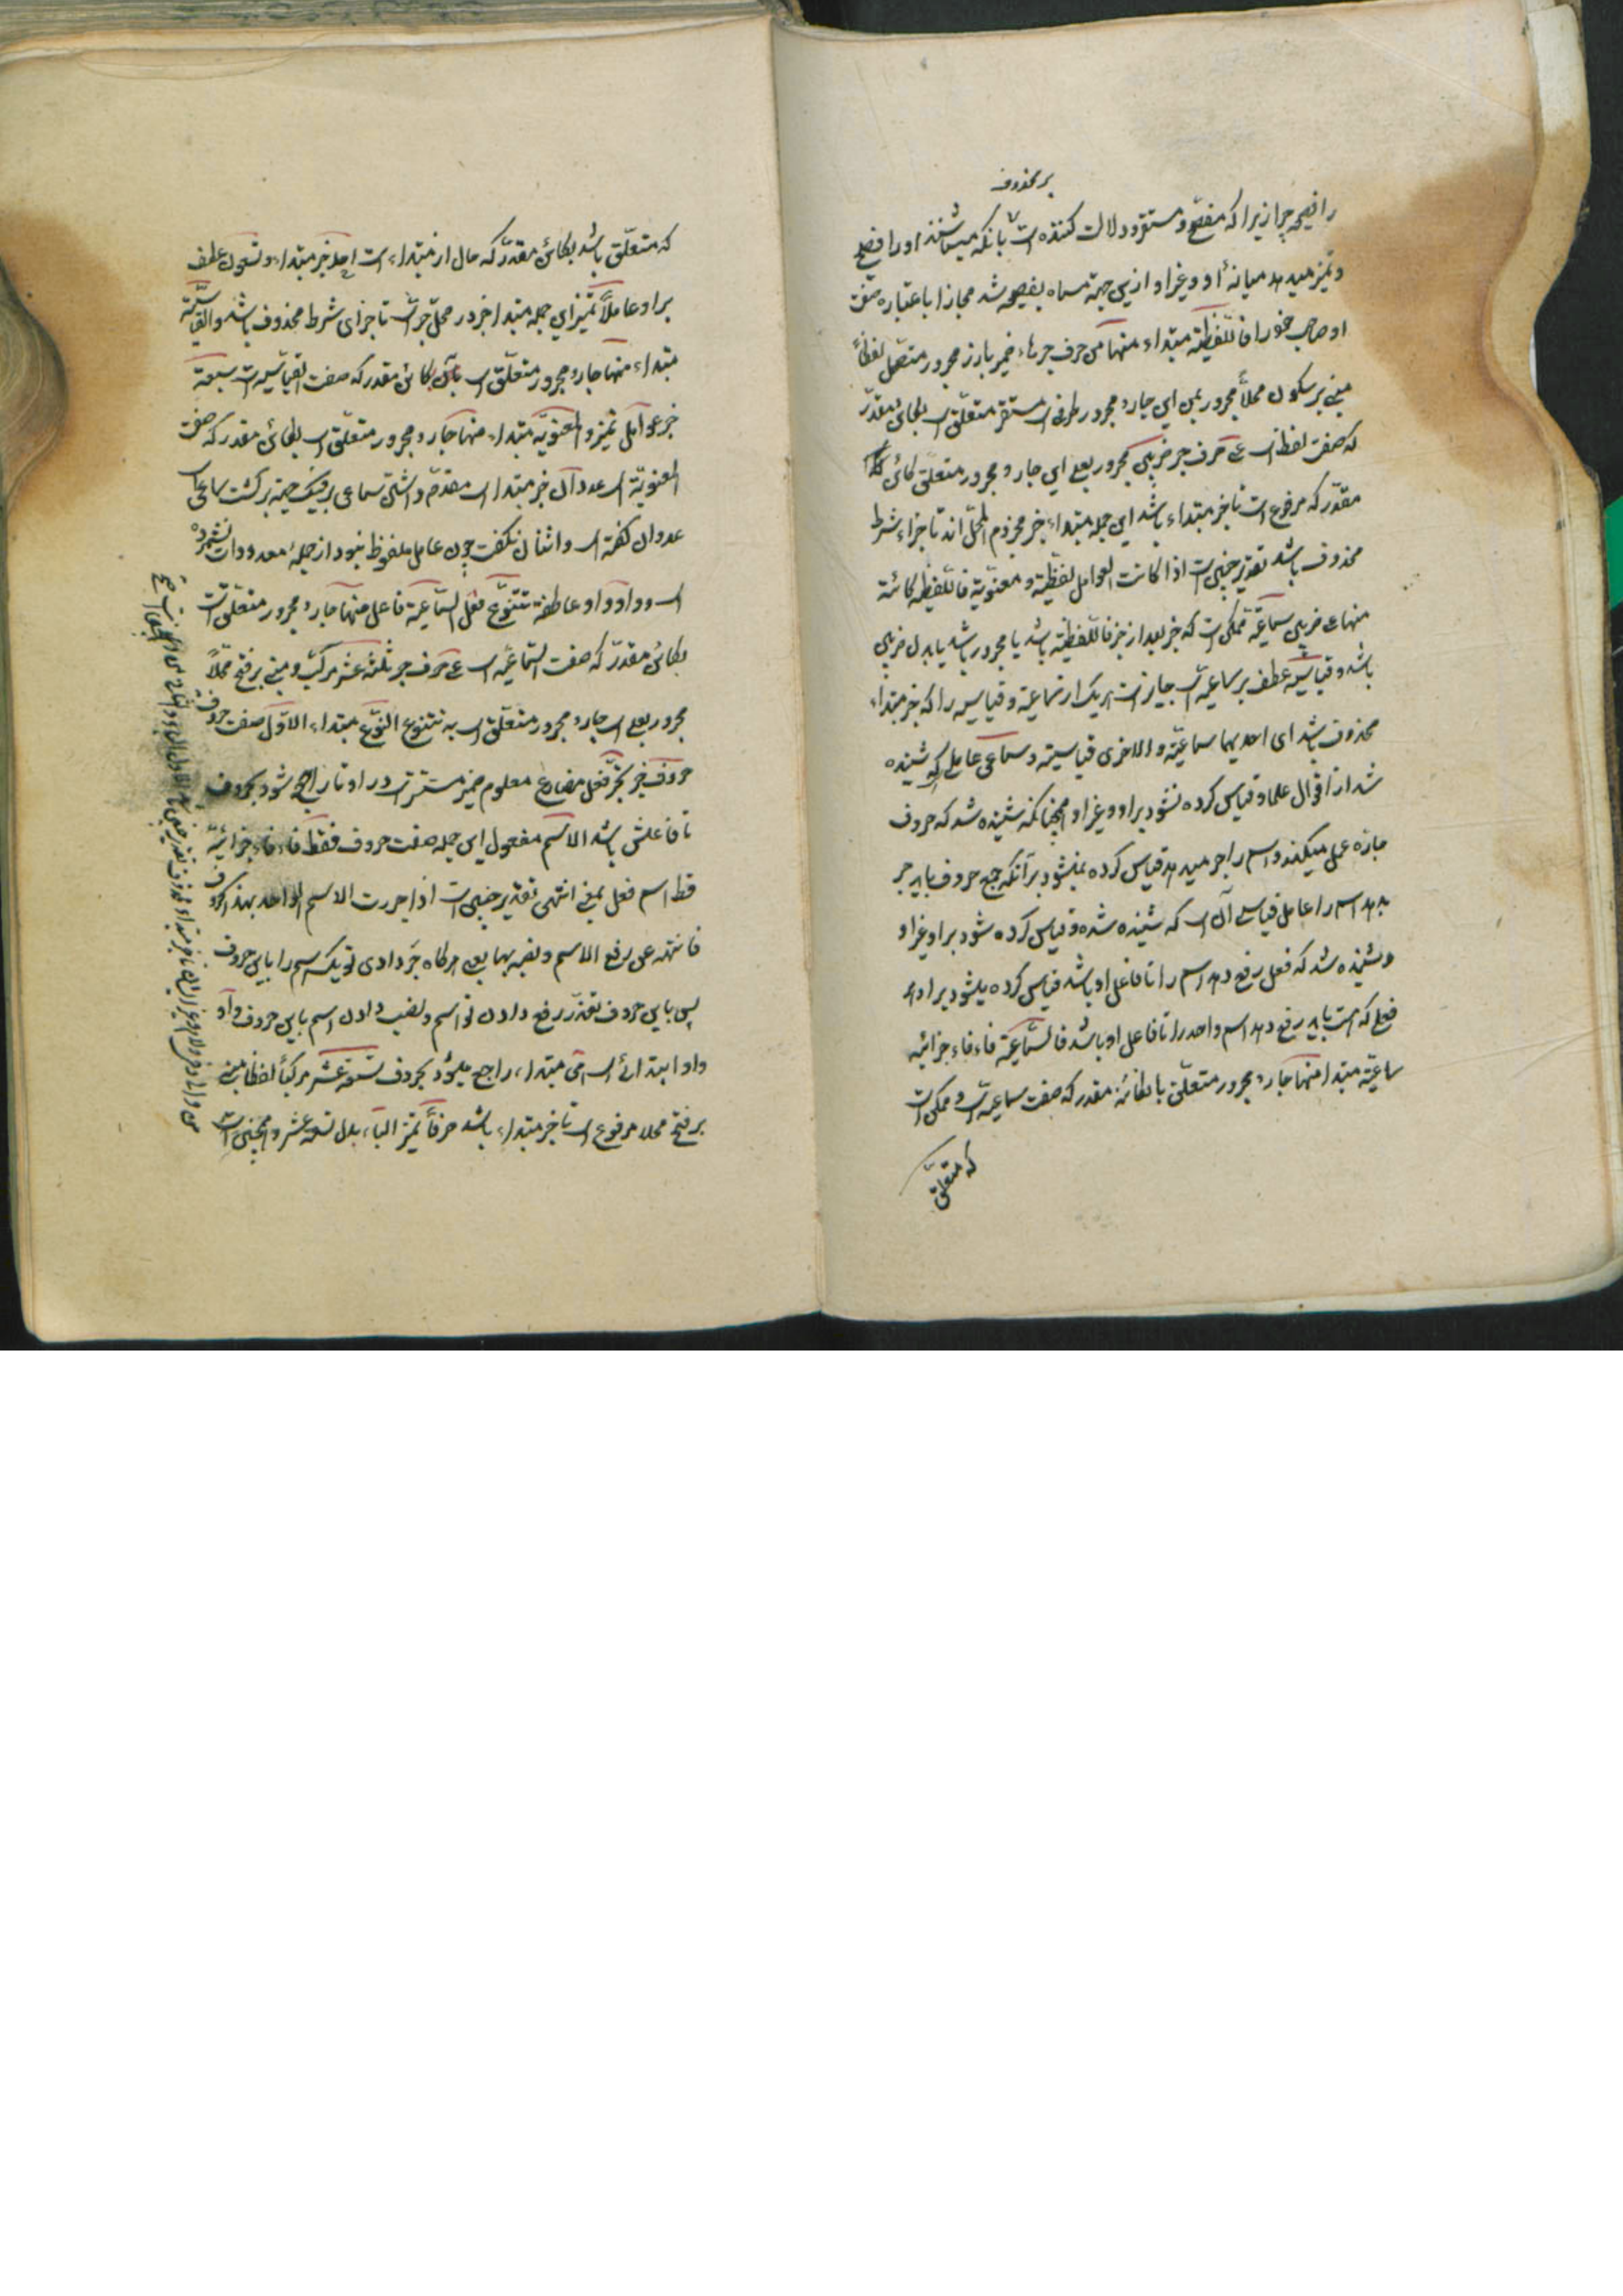 بر محذوف
را فصیحه چرا زیرا که مفصح و مستقر و دلالت کننده است بآنکه میشناسند او را فصیح
و تمیز میدهد میانهٔ او و غیر او ازین جهة مسماه بفصیحه شد مجازا باعتباره صفت
او صاحب خود را فاللفظیة مبتداء منها من حرف جر هاء ضمیر بارز مجرور متصل لفظاً
مبنی بر سکون محلاً مجرور بمن این جار و مجرور ظرف مستقر متعلق است بکائن مقدر
که صفت لفظ است علی حرف جر ضربین مجرور بعلی این جار و مجرور متعلق کائن
مقدر که مرفوع است تا خبر مبتداء باشد این جمله مبتداء خبر مجزوم المحل اند تا جزاء شرط
محذوف باشد تقدیر چنین است اذا کانت العوامل لفظیة و معنویة فاللفظیه کائنة
منها علی ضربین سماعیة ممکن است که خبر بعد از خبر فاللفظیه باشد یا مجرور باشد یا بدل ضربین
باشد و قیاسیة عطف بر سماعیه است جایز است هر یک از سماعیة و قیاسیه را که خبر مبتداء
محذوف باشد ای احدیهما سماعیة و الاخری قیاسیة و سماعی عاملی که شنیده
شد از اقوال علما و قیاس کرده نشود براو و غیر او همچنانکه شنیده شد که حروف
جاره عمل میکنند و اسم را جر میدهد قیاس کرده نمیشود بر آنکه جمیع حروف باید جر
بدهد اسم را عامل قیاسی آن است که شنیده شده و قیاس کرده شود براو غیر او
و شنیده شد که فعل رفع دهد اسم را تا فاعل او باشد قیاس کرده میشود براو هر
فعلی که است باید رفع دهد اسم واحد را تا فاعل او باشد فالسماعیة فاء فاء جزائیه
سماعیة مبتدا منها جار و مجرور متعلق بالکائنه مقدر که صفت سماعیه است و ممکن است
که متعلق
که متعلق باشد بکائن مقدر که حال از مبتداء است احد خبر مبتداء و تسعون عطف
براو عاملاً تمیز این جمله مبتدا خبر در محل جر است تا جزای شرط محذوف باشد والقیاسیة
مبتداء منها جار و مجرور متعلق است بکائن مقدر که صفت القیاسیه است سبعة
خبر عوامل تمیز و المعنویه مبتداء منها جار و مجرور متعلق است بکائن مقدر که صفت
المعنویة است عددان خبر مبتدا است
عددان گفته است و اثنان نگفت چون عامل ملفوظ نبود از جملهٔ معدودات نشمرده
است و واو واو عاطفة تتنوع فعل السماعیة فاعل منها جار و مجرور متعلق است
بکائن مقدر که صفت السماعیه است علی حرف جر ثلثة عشر مرکب و مبنی بر فتح محلاً
مجرور بعلی است جار و مجرور متعلق است به تتنوع النوع مبتداء الاول صفت
حروف خبر تجر فعل مضارع معلوم ضمیر مستتر است در او تا راجع شود بحروف
تا فاعلش باشد الاسم مفعول این جمله صفت حروف فقط فاء فاء جزائیة
قط اسم فعل بمعنی انتهی تقدیر چنین است اذا جررت الاسم الواحد بهذه الحروف
فانته عن رفع الاسم و نصبه بها یعنی هرگاه جر دادی تو یک اسم را باین حروف
پس باین حروف رفع دادن تو اسم و نصب دادن اسم باین حروف و واو
واو ابتدائی است هی مبتداء راجع میشود بحروف تسعة عشر مرکباً لفظا مبنی
بر فتح محلا مرفوع است تا خبر مبتداء باشد حرفاً تمیز الباء بدل تسعة عشر و همچنین است